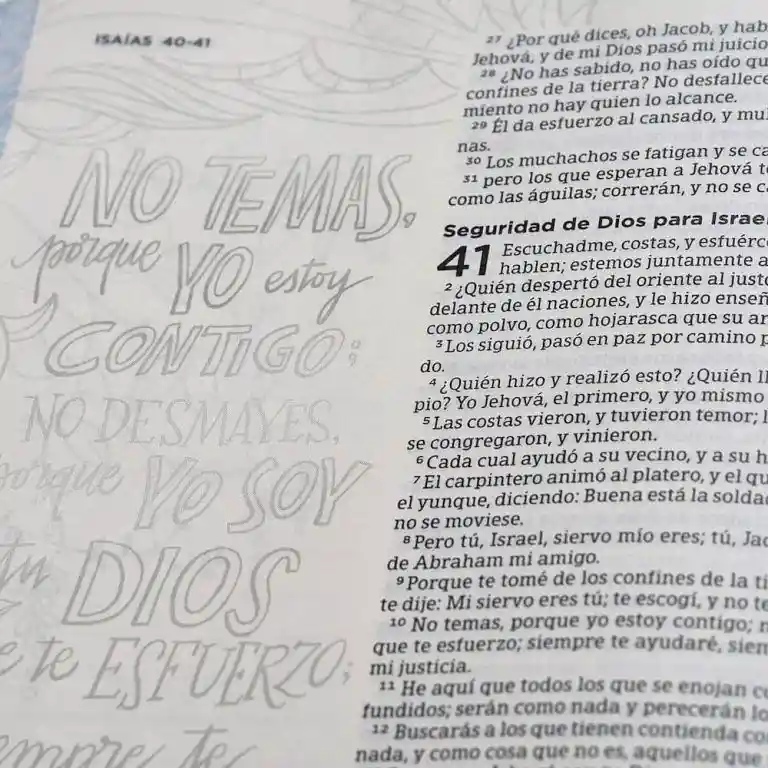 ISAÍAS 40-41
NO TEMAS,
porque YO estoy
CONTIGO;
NO DESMAYES,
porque YO SOY
tu DIOS
te ESFUERZO;
te
27 ¿Por qué dices, oh Jacob, y
Jehová, y de mi Dios pasó mi juicio
28 ¿No has sabido, no has oído
confines de la tierra? No desfallece
miento no hay quien lo alcance.
29 Él da esfuerzo al cansado, y
nas.
30 Los muchachos se fatigan y se
31 pero los que esperan a Jehová
como las águilas; correrán, y no se
Seguridad de Dios para Israel
41 Escuchadme, costas, y
hablen; estemos juntamente a
2 ¿Quién despertó del oriente al
delante de él naciones, y le hizo
como polvo, como hojarasca que su
3 Los siguió, pasó en paz por camino
do.
4 ¿Quién hizo y realizó esto? ¿Quién
pio? Yo Jehová, el primero, y yo mismo
5 Las costas vieron, y tuvieron temor;
se congregaron, y vinieron.
6 Cada cual ayudó a su vecino, y a su
7 El carpintero animó al platero, y el
el yunque, diciendo: Buena está la
no se moviese.
8 Pero tú, Israel, siervo mío eres; tú,
de Abraham mi amigo.
9 Porque te tomé de los confines de la
te dije: Mi siervo eres tú; te escogí, y no
10 No temas, porque yo estoy contigo;
que te esfuerzo; siempre te ayudaré,
mi justicia.
11 He aquí que todos los que se enojan
fundidos; serán como nada y perecerán
12 Buscarás a los que tienen contienda
nada, y como cosa que no es, aquellos que